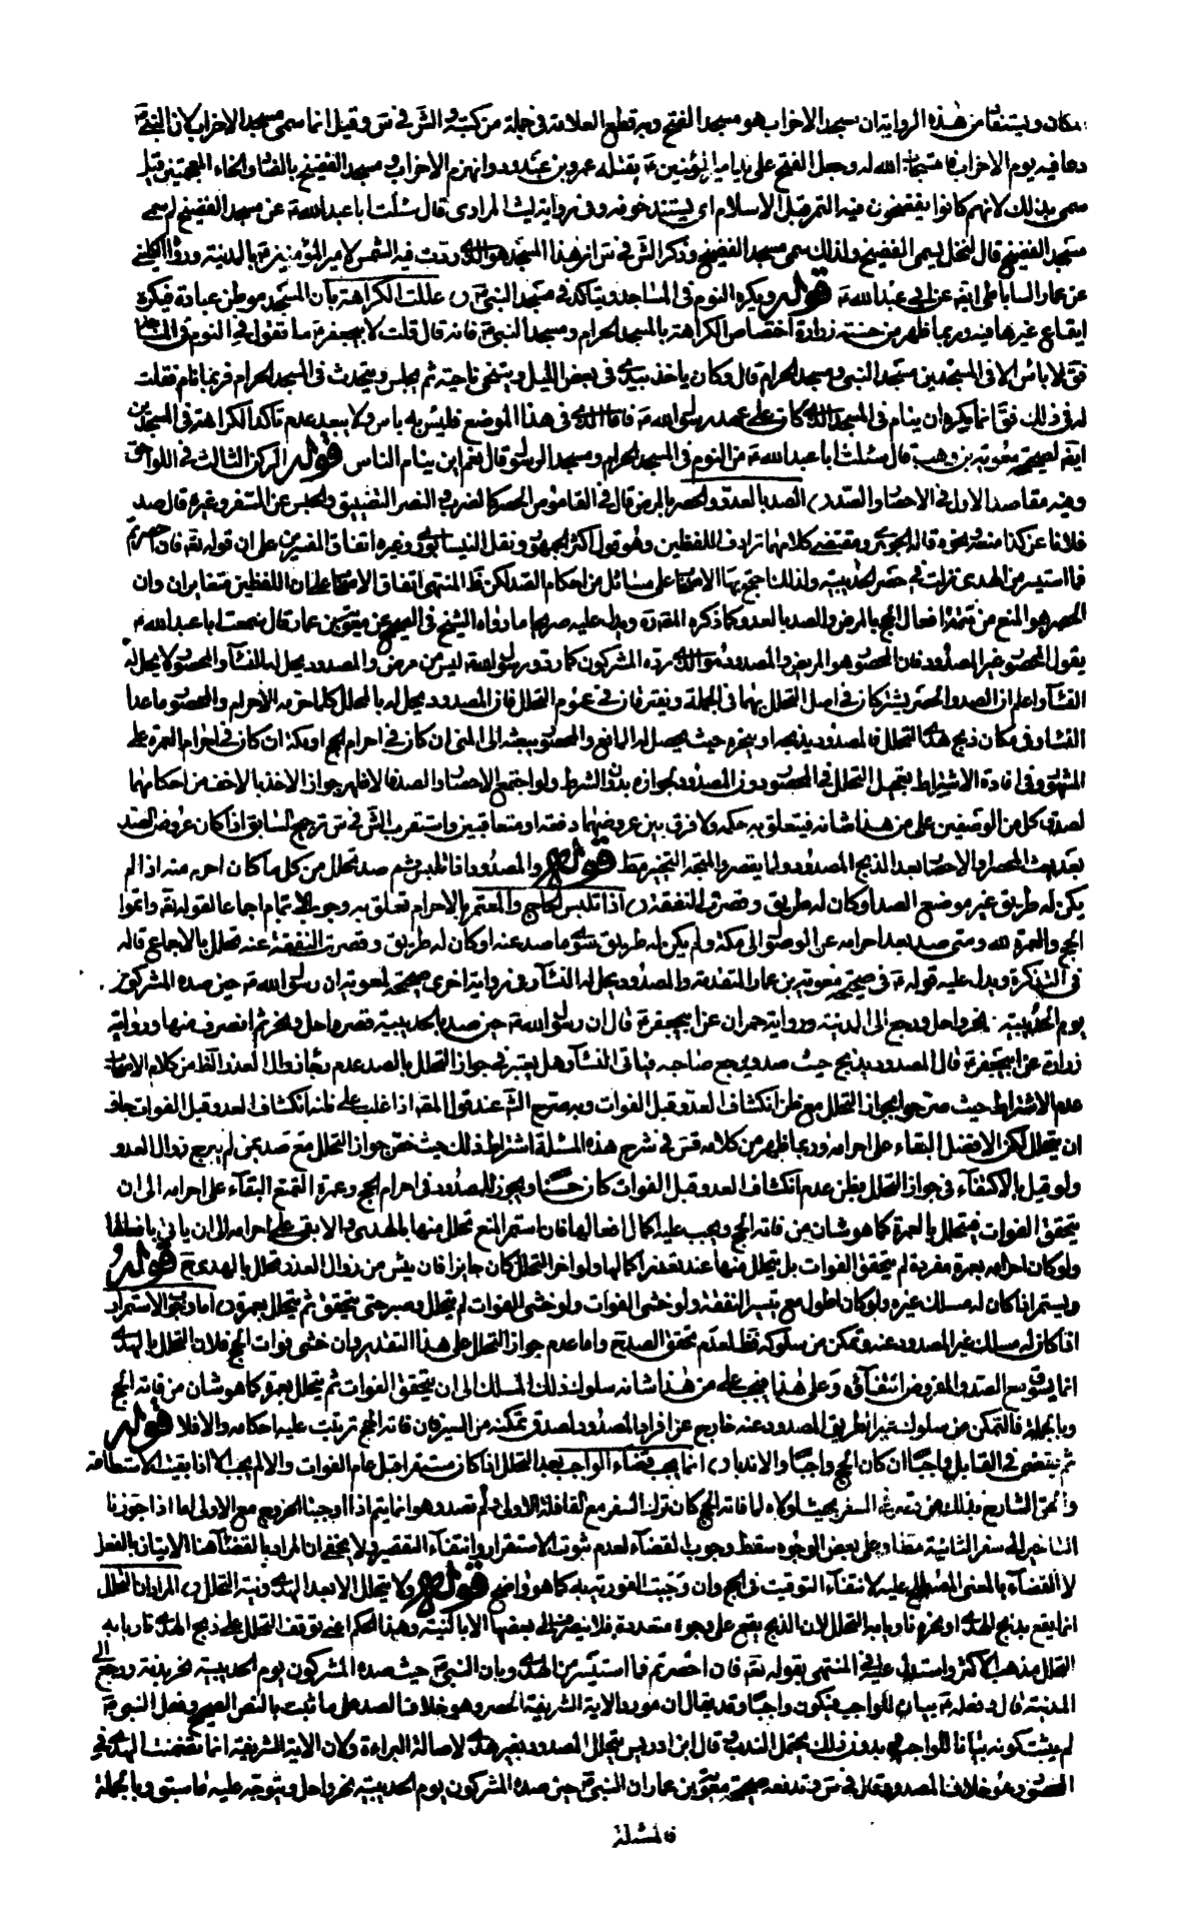 مكان ويستفاد من هذه الرواية ان مسجد الاحزاب هو مسجد الفتح وبه قطع العلامة في جملة من كتبه والش في س وقيل انما سمى مسجد الاحزاب لان النبي ص
دعا فيه يوم الاحزاب فاستجاب الله له وجعل الفتح على يد امير المؤمنين ع بقتله عمرو بن عبدود وانهزم الاحزاب ومسجد الفضيخ بالضاد والخاء المعجمتين قيل
سمى بذلك لانهم كانوا يفضخون فيه التمر قبل الاسلام اى يشدخونه وفى رواية ليث المرادى قال سئلت ابا عبد الله ع عن مسجد الفضيخ لم سمى
مسجد الفضيخ قال لنخل يسمى الفضيخ ولذلك سمى مسجد الفضيخ وذكر الش في س ان هذا المسجد هو الذى ردت فيه الشمس لامير المؤمنين ع بالمدينة ورواه الكلينى
عن عمار الساباطى ايضا عن ابي عبد الله ع قوله ويكره النوم فى المساجد ويتاكد في مسجد النبي ص عللت الكراهة بان المسجد موطن عبادة فيكره
ايقاع غيرها فيه وربما ظهر من حسنة زرارة اختصاص الكراهة بالمسجد الحرام ومسجد النبي ص فانه قال قلت لابيجعفر ع ما تقول في النوم في المساجد
فق لا باس الا فى المسجدين مسجد النبي ومسجد الحرام قال وكان ياخذ بيدى فى بعض الليل ويتنحى ناحية ثم يجلس ويتحدث فى المسجد الحرام فربما نام فقلت
له في ذلك فق انما يكره ان ينام فى المسجد الذى كان على عهد رسول الله ص فاما الذى فى هذا الموضع فليس به باس ولا يبعد عدم تاكد الكراهة فى المسجدين
ايضا لصحيحة معوية بن وهب قال سئلت ابا عبد الله ع عن النوم فى المسجد الحرام ومسجد الرسول قال نعم اين ينام الناس قوله الركن الثالث في اللواحق
وفيه مقاصد الاول في الاحصار والصد الصد بالعدو والحصر بالمرض قال في القاموس الحصر كالضرب والنصر التضييق والحبس عن السفر وغيره قال صد
فلانا عن كذا منعه ونحوه قاله الجوهرى ومقتضى كلامهما ترادف اللفظين وهو قول اكثر الجمهور ونقل النيسابورى وغيره اتفاق المفسرين على ان قوله تعه فان احصرتم
فما استيسر من الهدى نزلت في حصر الحديبية ولذلك احتج بها الاصحاب على مسائل من احكام الصد لكن ظ المنتهى اتفاق الاصحاب على ان اللفظين متغايران وان
الحصر هو المنع من تتمة افعال الحج بالمرض والصد بالعدو كما ذكره المص ره ويدل عليه صريحا ما رواه الشيخ في الصحيح عن معوية بن عمار قال سمعت ابا عبد الله ع
يقول المحصور غير المصدود فان المحصور هو المريض والمصدود هو الذى رده المشركون كما ردوا رسول الله ص ليس من مرض والمصدود يحل له النساء والمحصور لا يحل له
النساء واعلم ان الصد والحصر يشتركان في اصل التحلل بهما فى الجملة ويفترقان في عموم التحلل فان المصدود يحل له بالمحلل كلما حرمه الاحرام والمحصور ما عدا
النساء وفى مكان ذبح هدى التحلل فالمصدود يذبحه او ينحره حيث يحصل له المانع والمحصور يبعثه الى المنى ان كان في احرام الحج او مكة ان كان في احرام العمرة على
المشهور وفى افادة الاشتراط تعجيل التحلل في المحصور دون المصدود لجوازه بدون الشرط ولو اجتمع الاحصار والصد فالاظهر جواز الاخذ بالاخف من احكامهما
لصدق كل من الوصفين على من هذا شانه فيتعلق به حكمه ولا فرق بين عروضهما دفعة او متعاقبين واستقرب الش في س ترجيح السابق اذا كان عروض الصد
بعد بعث المحصر او الاحصار بعد الذبح المصدود ولما يقصر والمتجه التخيير مط قوله والمصدود اذا تلبس ثم صد تحلل من كل ما كان احرم منه اذا لم
يكن له طريق غير موضع الصد او كان له طريق وقصرت النفقة اذا تلبس الحاج والمعتمر بالاحرام تعلق به وجوب الاتمام اجماعا لقوله تعه واتموا
الحج والعمرة لله ومتى صد بعد احرامه عن الوصول الى مكة ولم يكن له طريق سوى ما صد عنه او كان له طريق وقصرت النفقة عنه تحلل بالاجماع قاله
في التذكرة ويدل عليه قوله ع فى صحيحة معوية بن عمار المتقدمة والمصدود يحل له النساء وفى رواية اخرى صحيحة لمعوية ان رسول الله ص حين صده المشركون
يوم الحديبية نحر واحل ورجع الى المدينة ورواية حمران عن ابيجعفر ع قال ان رسول الله ص حين صد بالحديبية قصر واحل ونحر ثم انصرف منها ورواية
زرارة عن ابيجعفر ع قال المصدود يذبح حيث صد ويرجع صاحبه فياتى النساء وهل يعتبر في جواز التحلل بالصد عدم رجاء زوال العذر الظ من كلام الاصحاب
عدم الاشتراط حيث صرحوا بجواز التحلل مع ظن انكشاف العدو قبل الفوات وبه صرح الش عند قول المص اذا غلب على ظنه انكشاف العدو قبل الفوات جاز
ان يتحلل لكن الافضل البقاء على احرامه وربما ظهر من كلامه قس في شرح هذه المسئلة اشتراط ذلك حيث خص جواز التحلل مع صد بمن لم يرج زوال العدو
ولو قيل بالاكتفاء فى جواز التحلل بظن عدم انكشاف العدو قبل الفوات كان حسنا ويجوز للمصدود فى احرام الحج وعمرة التمتع البقاء على احرامه الى ان
يتحقق الفوات فيتحلل بالعمرة كما هو شان من فاته الحج ويجب عليه اكمال افعالها فان استمر المنع تحلل منها بالهدى والا بقى على احرامه الى ان ياتى بافعالها
ولو كان احرامه بعمرة مفردة لم يتحقق الفوات بل يتحلل منها عند تعذر اكمالها ولو اخر التحلل كان جايزا فان يئس من زوال العذر تحلل بالهدى ح قوله
ويستمر اذا كان له مسلك غيره ولو كان اطول مع تيسر النفقة ولو خشى الفوات ولو خشى الفوات لم يتحلل وصبر حتى يتحقق ثم يتحلل بعمرة اما وجوب الاستمرار
اذا كان له مسلك غير المصدود عنه وتمكن من سلوكه فظ لعدم تحقق الصد ح واما عدم جواز التحلل على هذا التقدير وان خشى فوات الحج فلان التحلل بالهدى
انما يسوغ مع الصد والمفروض انتفاؤه وعلى هذا فيجب على من هذا شانه سلوك ذلك المسلك الى ان يتحقق الفوات ثم يتحلل بعمرة كما هو شان من فاته الحج
وبالجملة فالتمكن من سلوك غير الطريق المصدود عنه خارج عن افراد المصدود لصدق تمكنه من السير فان فاته الحج ترتبت عليه احكامه والا فلا قوله
ثم يقضى في القابل واجبا ان كان الحج واجبا والا ندبا انما يجب قضاء الواجب بعد التحلل اذا كان مستقرا قبل عام الفوات والا لم يجب الا اذا بقيت الاستطاعة
السفر بحيث لولاه لما فاته الحج كان ترك السفر مع القافلة الاولى ولم تصد وهو انما يتم اذا اوجبنا الخروج مع الاولى اما اذا جوزنا
التاخير الى سفر الثانية مط او على بعض الوجوه سقط وجوب القضاء لعدم ثبوت الاستقرار وانتفاء التقصير ولا يخفى ان المراد بالقضاء هنا الاتيان بالفعل
لا القضاء بالمعنى المصطلح عليه لانتفاء التوقيت فى الحج وان وجبت الفورية به كما هو واضح قوله ولا يتحلل الا بعد الهدى ونية التحلل المراد ان التحلل
انما يقع بذبح الهدى او نحره ناويا به التحلل لان الذبح يقع على وجوه متعددة فلا ينصرف الى بعضها الا بالنية وهذا الحكم اعنى توقف التحلل على ذبح الهدى ناويا به
التحلل مذهب الاكثر واستدل عليه في المنتهى بقوله تعه فان احصرتم فما استيسر من الهدى وبان النبي ص حيث صده المشركون يوم الحديبية نحر بدنة ورجع الى
المدينة قال وفعله ص بيان للواجب فيكون واجبا وقد يقال ان مورد الاية الشريفة الحصر وهو خلاف الصد على ما ثبت بالنص الصحيح وفعل النبي ص
لم يثبت كونه بيانا للواجب اذ بدون ذلك يحتمل الندب وقال ابن ادريس يتحلل المصدود بغير هدى لاصالة البراءة ولان الاية الشريفة انما تضمنت الهدى في
المحصور وهو خلاف المصدود قال في س ويدفعه صحيحة معوية بن عمار ان النبي ص حين صده المشركون يوم الحديبية نحر واحل ويتوجه عليه ما سبق وبالجملة
فالمسئلة